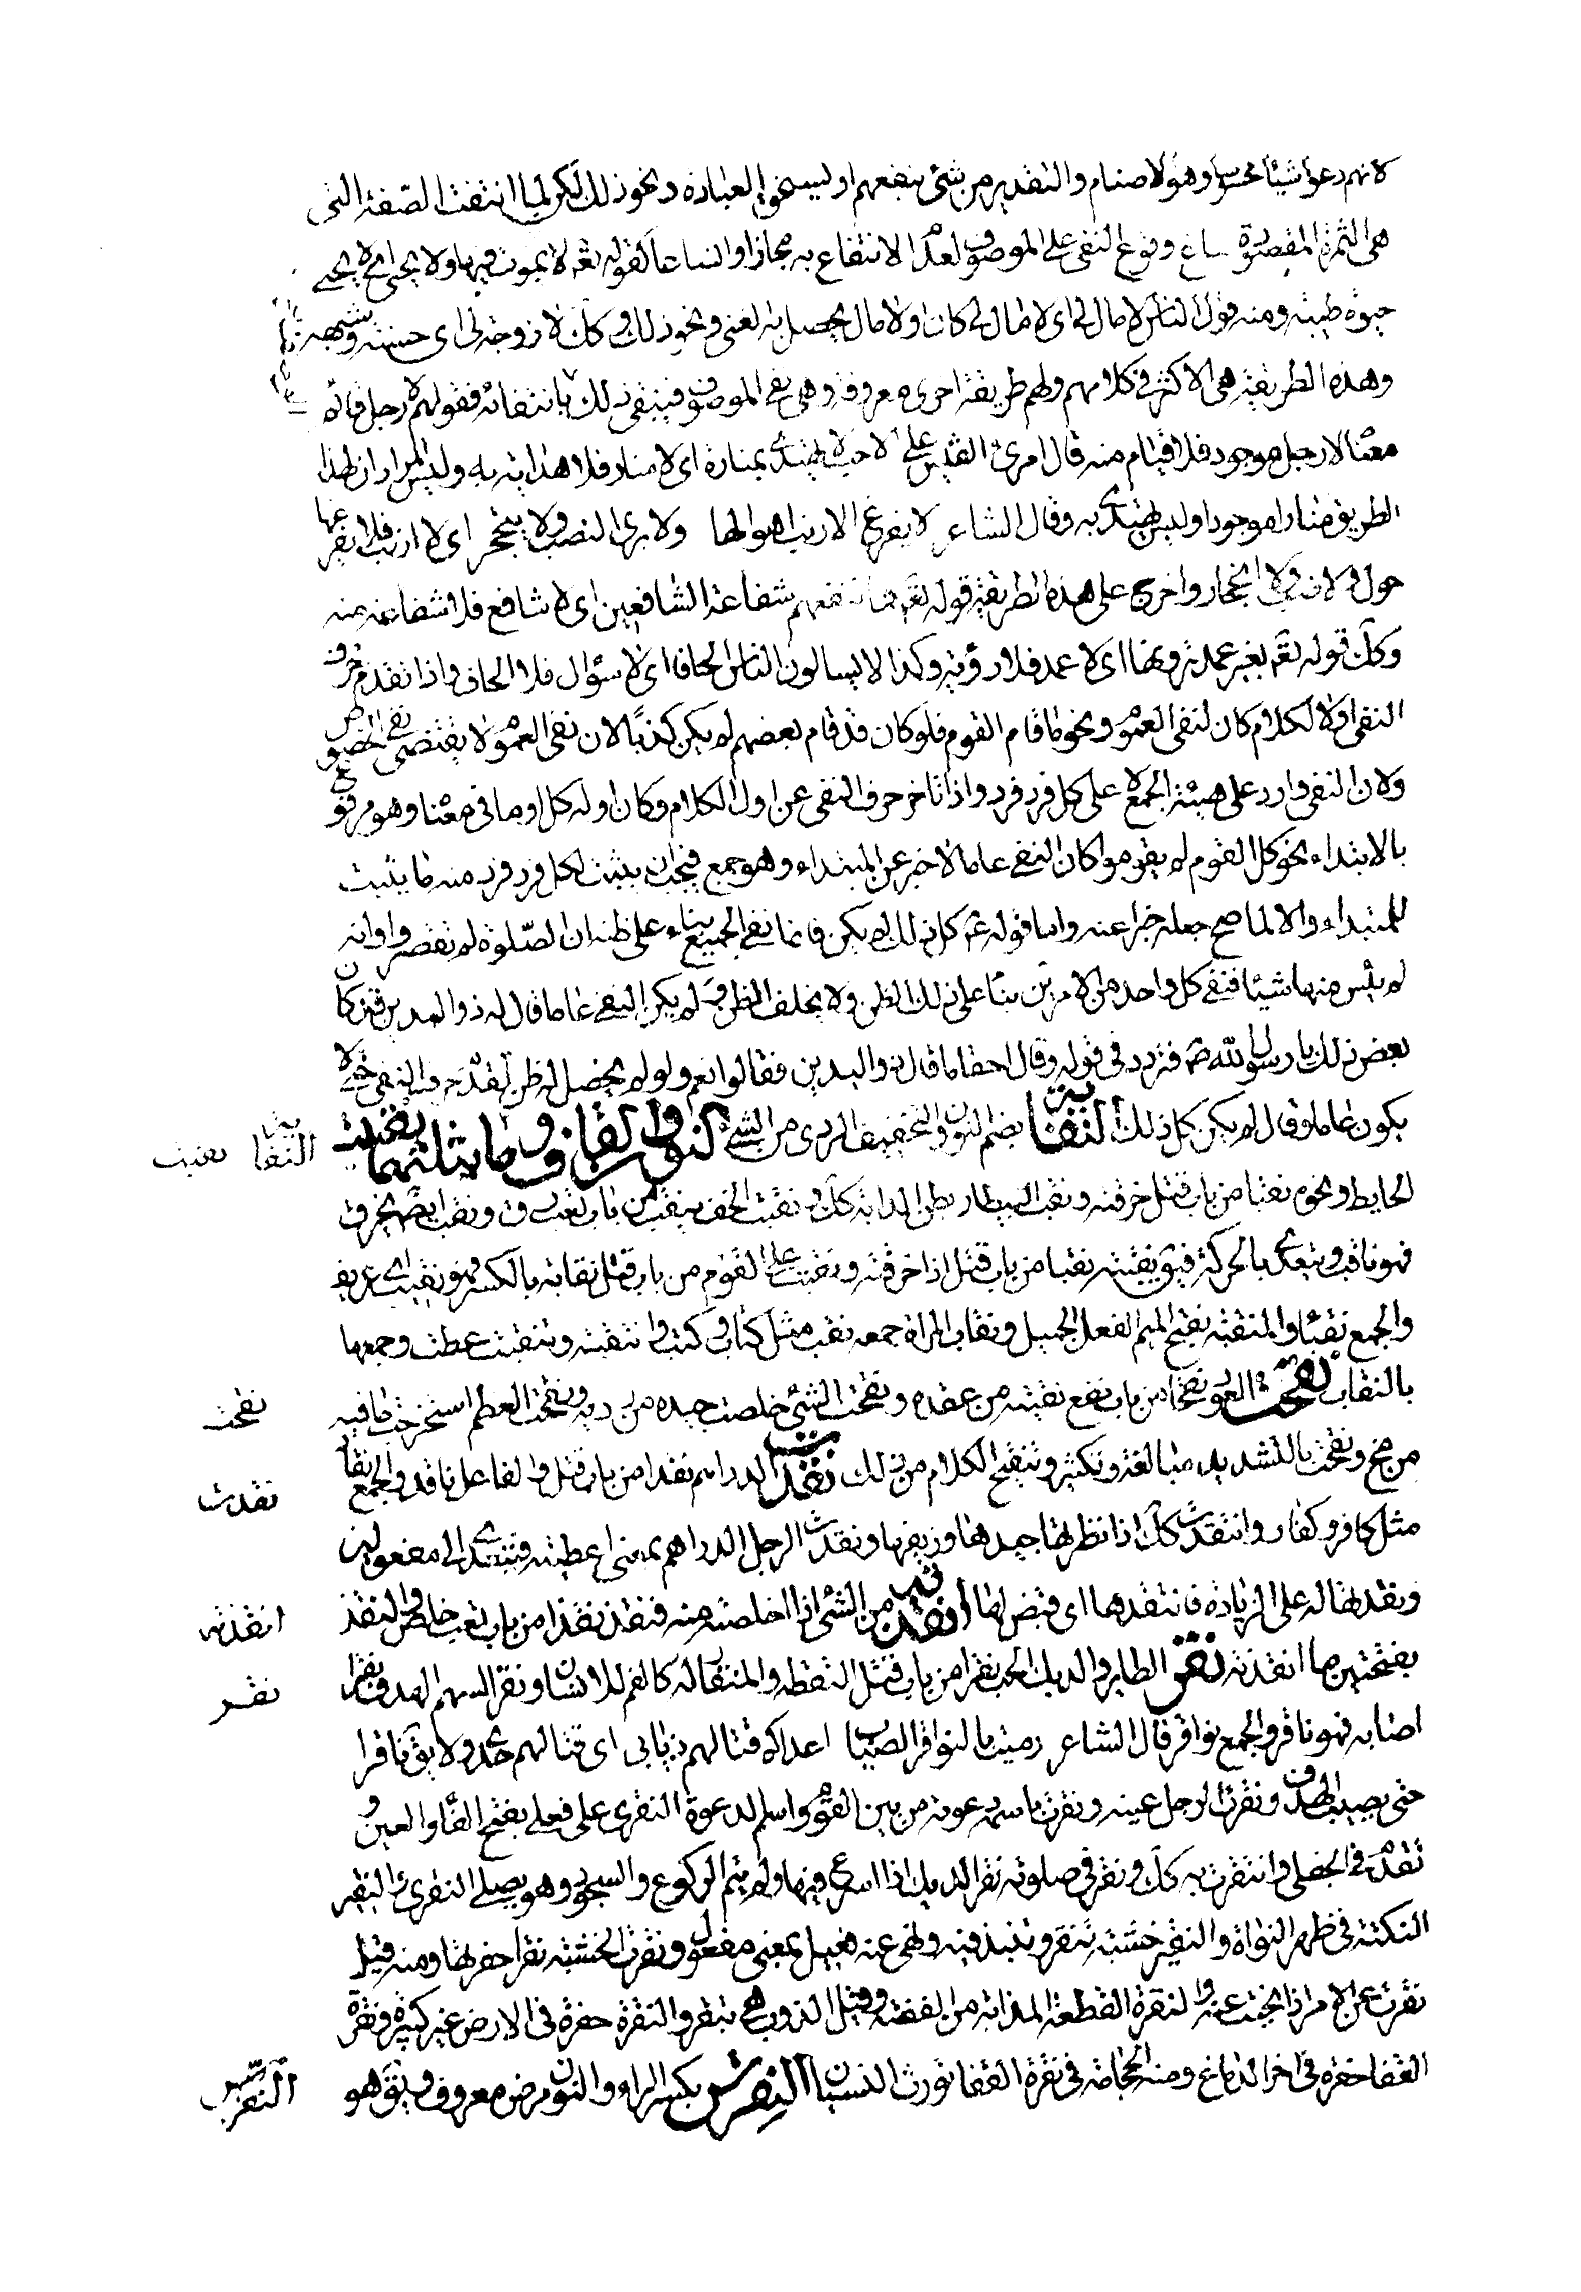 لانهم دعوا شيئا محسوسا وهو لاصنام والتقدير من شئ ينفعهم او ليستحق العبادة ونحو ذلك لكن لما انتفت الصفة التى
هى الثمرة المقصودة ساغ وقوع النفى على الموصوف لعدم الانتفاع به مجازا واتساعا كقوله تعه لا يموت فيها ولا يحيى اى لا يحيى
حيوة طيبة ومنه قول الناس لا مال لى اى لا مال لى كان او لا مال يحصل به لغنى ونحو ذلك وكك لا زوجة لى اى حسنة وشبهه
وهذه الطريقة هى الاكثر فى كلامهم ولهم طريقة اخرى معروفة وهى نفى الموصوف فينتفى ذلك بانتفائه فقولهم لا رجل قائم
معنا لا رجل موجود فلا قيام منه قال امرئ القيس على لاحب لا يهتدى بمناره اى لا منار فلا هداية به وليس المراد ان لهذا
الطريق منارا موجودا وليس يهتدى به وقال الشاعر لا يفزع الارنب اهوالها ولا يرى الضب بها ينجحر اى لا ارنب فلا يفزعها
هول ولا ضب ولا انجحار واخرج على هذه الطريقة قوله تعه فما تنفعهم شفاعة الشافعين اى لا شافع فلا شفاعة منه
وكك قوله تعه بغير عمد ترونها اى لا عمد فلا رؤية وكذا لا يسالون الناس الحافا اى لا سؤال فلا الحاف واذا تقدم حرف
النفى اول الكلام كان لنفى العموم ونحو ما قام القوم فلو كان قد قام بعضهم لم يكن كذبا لان نفى العموم لا يقتضى نفى الخصوص
ولان النفى وارد على هيئة الجمع لا على كل فرد فرد واذا تاخر حرف النفى عن اول الكلام وكان اوله كل او ما فى معنا وهو مرفوع
بالابتداء نحو كل القوم لم يقوموا كان النفى عاما لانه خبر عن المبتداء وهو جمع فيجب ان يثبت لكل فرد فرد منه ما يثبت
للمبتداء والا لما صح جعله خبرا عنه واما قوله عم كل ذلك لم يكن فانما نفى الجميع بناء على ظنه ان الصلوة لم تقصر وانه
لم ينس منها شيئا فنفى كل واحد من الامرين بناء على ذلك الظن ولا يخلف الظن لم يكن النفى عاما قال له ذو اليدين قد كان
بعض ذلك يا رسول الله صم فتردد فى قوله وقال احقا ما قال ذو اليدين فقالوا نعم ولو لم يحصل له ظن لقدم حرف النفى حتى لا
يكون عاما وقال لم يكن كل ذلك النقاية بضم النون والتخفيف الردى من الشئ النون والقاف وما يثلثهما نقبت
الحايط ونحوه نقبا من باب قتل خرقته ونقب البيطار بطن الدابة كك ونقب الخف ينقب من باب تعب رق ونقب ايضا تخرق
فهو ناقب ويتعدى بالحركة فيق نقبته نقبا من باب قتل اذا خرقته ونقبت على القوم من باب قتل نقابة بالكسر فهو نقيب اى عريف
والجمع نقباء والمنقبة بفتح الميم الفعل الجميل ونقاب المراة جمعه نقب مثل كتاب وكتب وانتقبت وتنقبت غطت وجهها
بالنقاب نقحت العود نقحا من باب نفع نقيته من عقده ونقحت الشئ خلصت جيده من رديه ونقحت العظم استخرجت ما فيه
من مخ ونقحت بالتشديد مبالغة وتكثير وتنقيح الكلام من ذلك نقدت الدراهم نقدا من باب قتل والفاعل ناقد والجمع نقاد
مثل كافر وكفار وانتقدت كك اذا نظرتها جيدها وزيفها ونقدت الرجل الدراهم بمعنى اعطيته فيتعدى الى مفعولين
ونقدتها له على الزيادة فانتقدها اى قبضها انقذته من الشئ اذا خلصته منه فنقذ نقذا من باب تعب خلص والنقذ
بفتحتين ما انقذته نقر الطاير والديك الحب نقرا من باب قتل التقطه والمنقار له كالفم للانسان ونقر السهم الهدف نقرا
اصابه فهو ناقر والجمع نواقر قال الشاعر رميت بالنواقر الصياب اعداكم فنالهم ذبابى اى فنالهم حدى ولا يق ناقر ا
حتى يصيب الهدف ونقرت الرجل عبته ونقرت باسمه دعوته من بين القوم واسم الدعوة النقرى على فعلى بفتح الفاء والعين و
تقدم فى الجفلى وانتقرت به كك ونقر فى صلوته نقر الديك اذا اسرع فيها ولم يتم الركوع والسجود وهو يصلى النقرى والنقير
النكتة فى ظهر النواة والنقير خشبة تنقر وتنبذ فيه ونهى عنه فعيل بمعنى مفعول ونقرت الخشبة نقرا حفرتها ومنه قيل
نقرت عن الامر اذا بحثت عنه والنقرة القطعة المذابة من الفضة وقيل الذوب هى تبر والنقرة حفرة فى الارض غير كبيرة ونقرة
القفا حفرة فى اخر الدماغ ومنه الحجامة فى نقرة القفا تورث النسيان النقرس بكسر الراء والنون مرض معروف ويق هو
النقاية نقبت
نقحت
نقدت
انقذته
نقر
النقرس